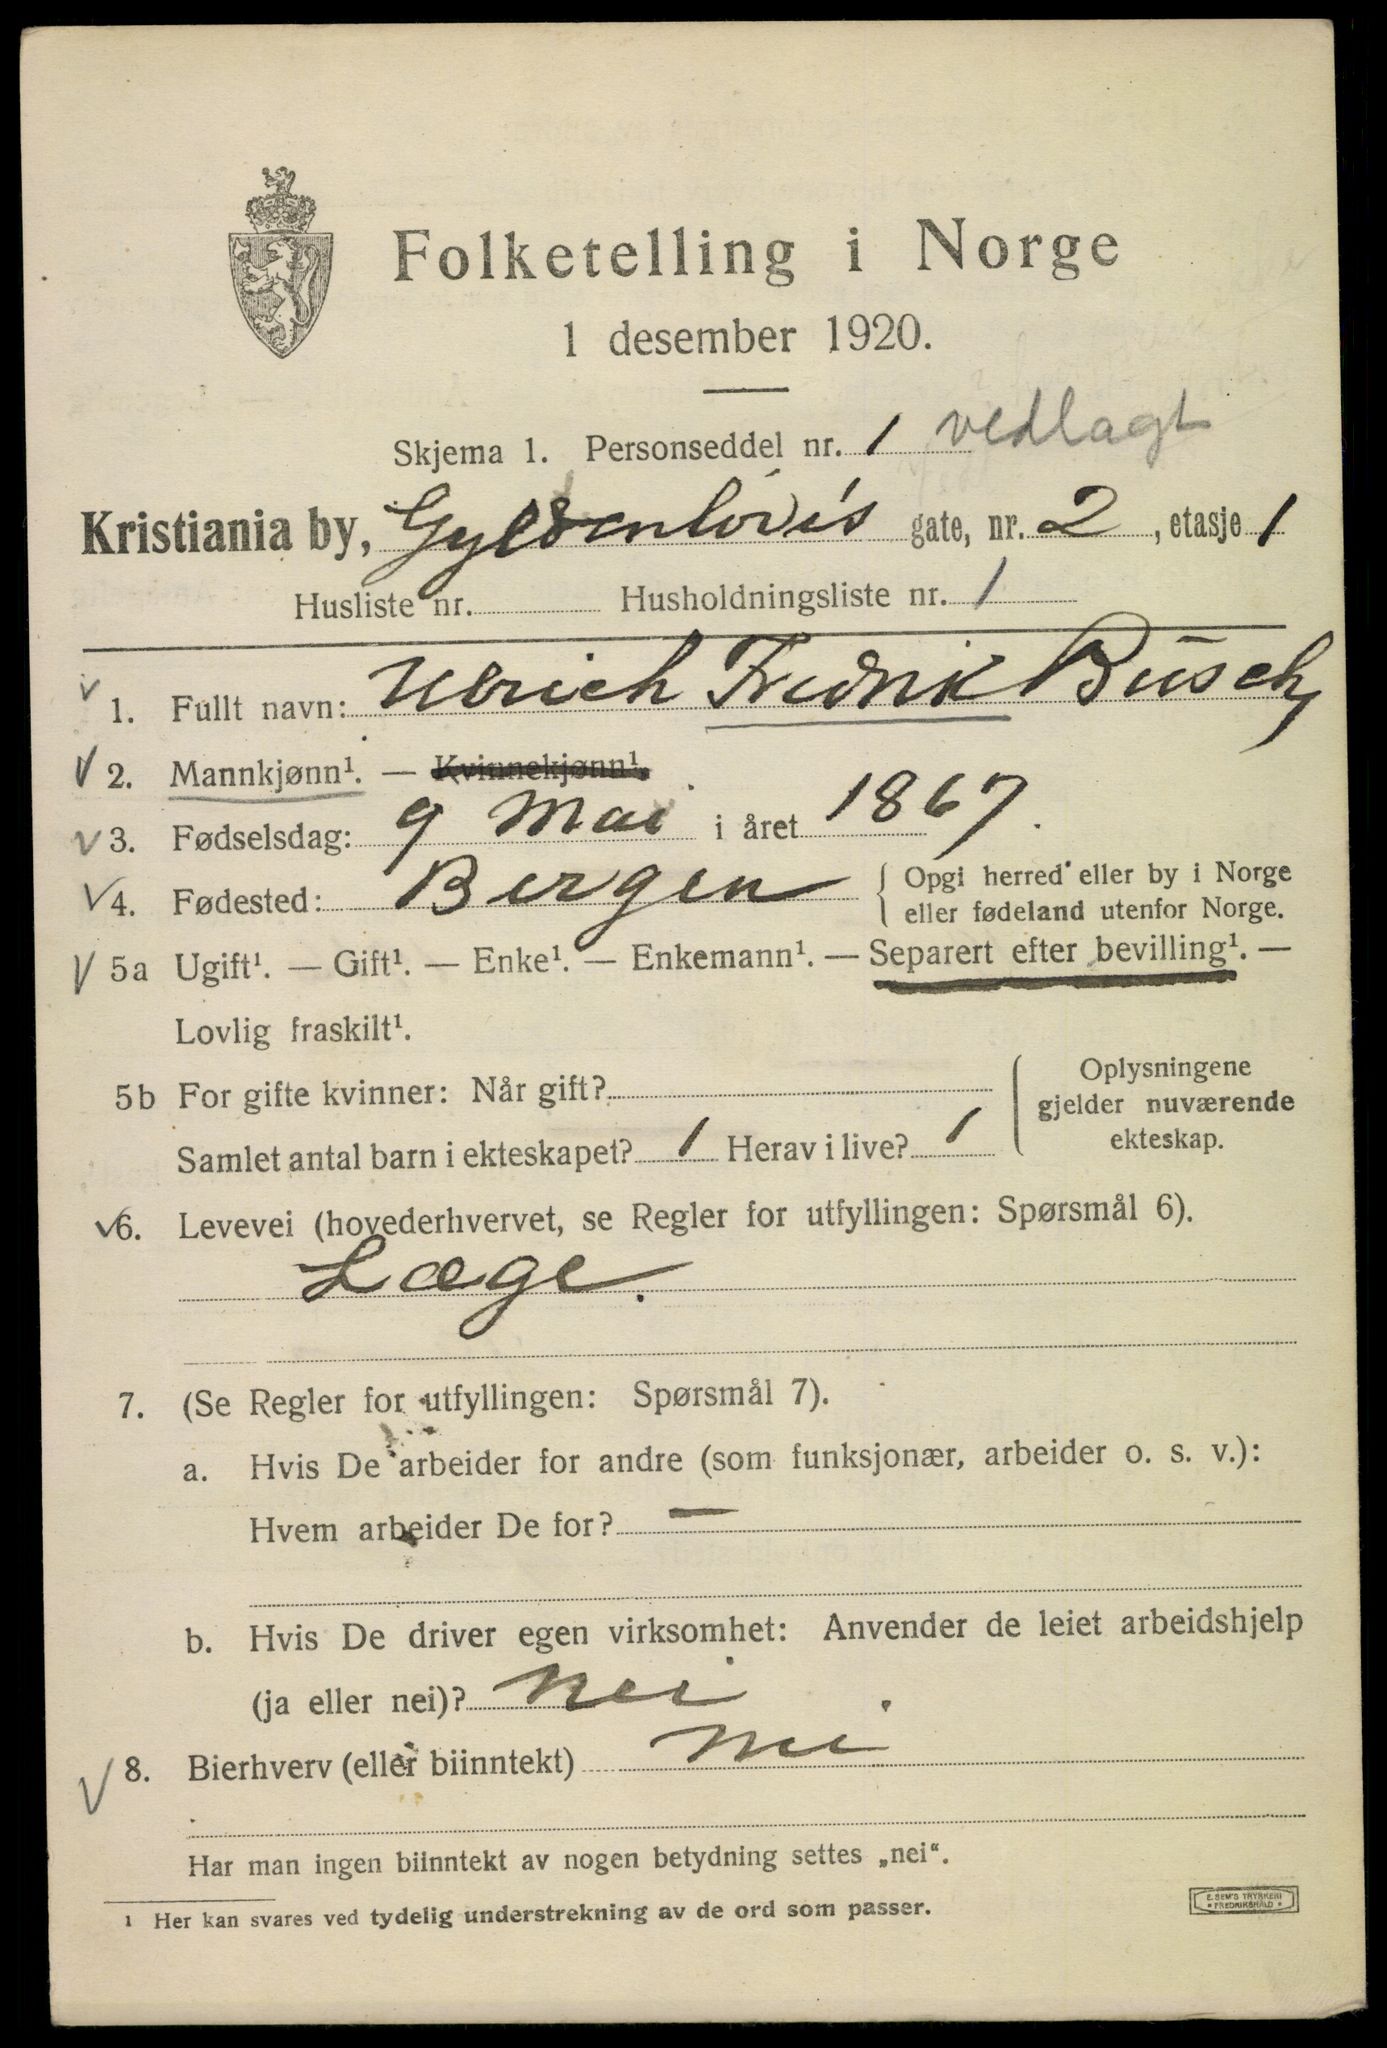 Folketelling i Norge
1 desember 1920.
Skjema 1. Personseddel nr. 1 vedlagt
Kristiania by, Gyldenløvs gate, nr. 2, etasje 1
Husliste nr. Husholdningsliste nr. 1
1. Fullt navn: Ulrich Fredrik Busch
2. Mannkjønn¹. — Kvinnekjønn¹.
3. Fødselsdag: 9 Mai i året 1867.
4. Fødested: Bergen { Opgi herred eller by i Norge
eller fødeland utenfor Norge.
5a Ugift¹. — Gift¹. — Enke¹. — Enkemann¹. — Separert efter bevilling¹. —
Lovlig fraskilt¹.
5b For gifte kvinner: Når gift?
Samlet antal barn i ekteskapet? 1 Herav i live? 1
Oplysningene
gjelder nuværende
ekteskap.
6. Levevei (hovederhvervet, se Regler for utfyllingen: Spørsmål 6).
Læge.
7. (Se Regler for utfyllingen: Spørsmål 7).
a. Hvis De arbeider for andre (som funksjonær, arbeider o. s. v.):
Hvem arbeider De for? —
b. Hvis De driver egen virksomhet: Anvender de leiet arbeidshjelp
(ja eller nei)? Nei
8. Bierhverv (eller biinntekt) Nei
Har man ingen biinntekt av nogen betydning settes „nei“.
1 Her kan svares ved tydelig understrekning av de ord som passer.
E. SEM'S TRYKKERI
* FREDRIKSHALD *